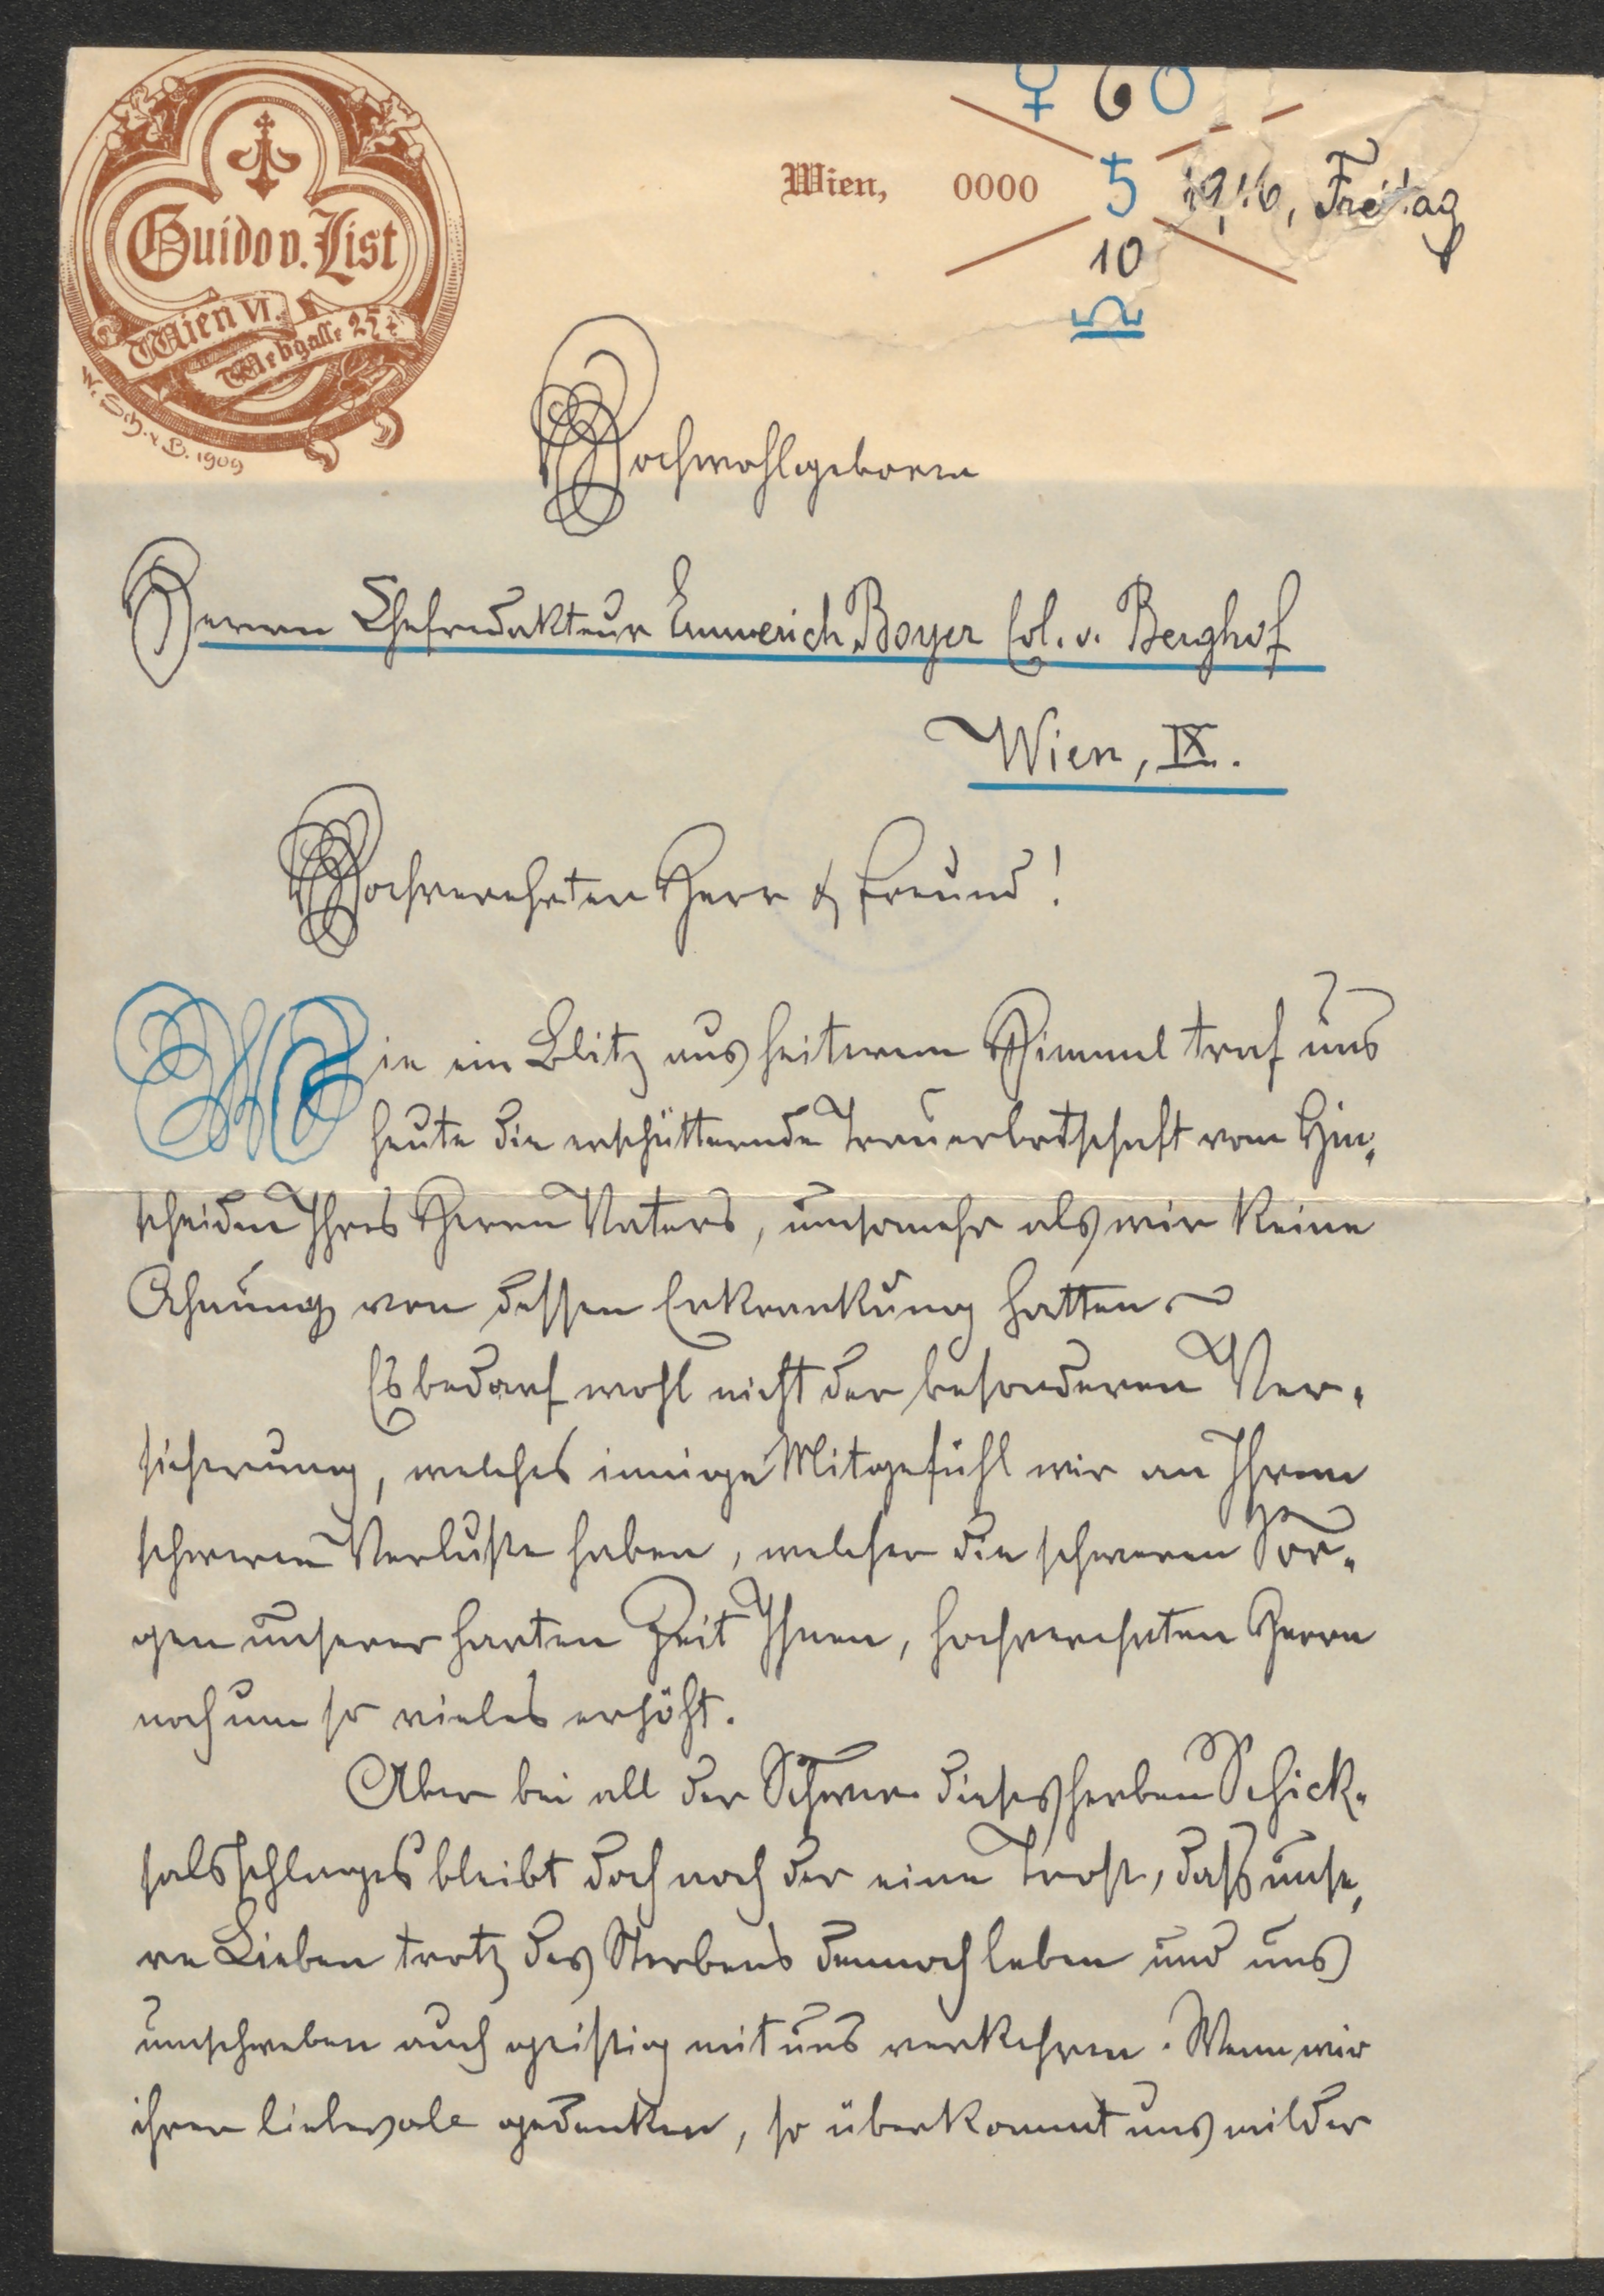 Guido v. List
Wien VI.
Webgasse 25
W. Sch. v. B. 1909
♀ 6 O
Wien, 0000 5 1916, Freitag
10
♎
Hochwohlgeboren
Herrn Chefredakteur Emmerich Boyer Edl. v. Berghof
Wien, IX.
Hochverehrter Herr & Freund!
Wie ein Blitz aus heiterem Himmel traf uns
heute die erschütternde Trauerbotschaft vom Hin-
scheiden Ihres Herrn Vaters, umsomehr als wir keine
Ahnung von dessen Erkrankung hatten.
Es bedarf wohl nicht der besonderen Ver-
sicherung, welches innige Mitgefühl wir an Ihrem
schweren Verluste haben, welcher die schweren Sor-
gen unserer harten Zeit Ihnen, hochverehrter Herr
noch um so vieles erhöht.
Aber bei all der Schwere dieses herben Schick-
salsschlages bleibt doch noch der eine Trost, daß unse-
re Lieben trotz des Sterbens dennoch leben und uns
umschweben auch geistig mit uns verkehren. Wenn wir
ihrer liebevole gedenken, so überkommt uns milder